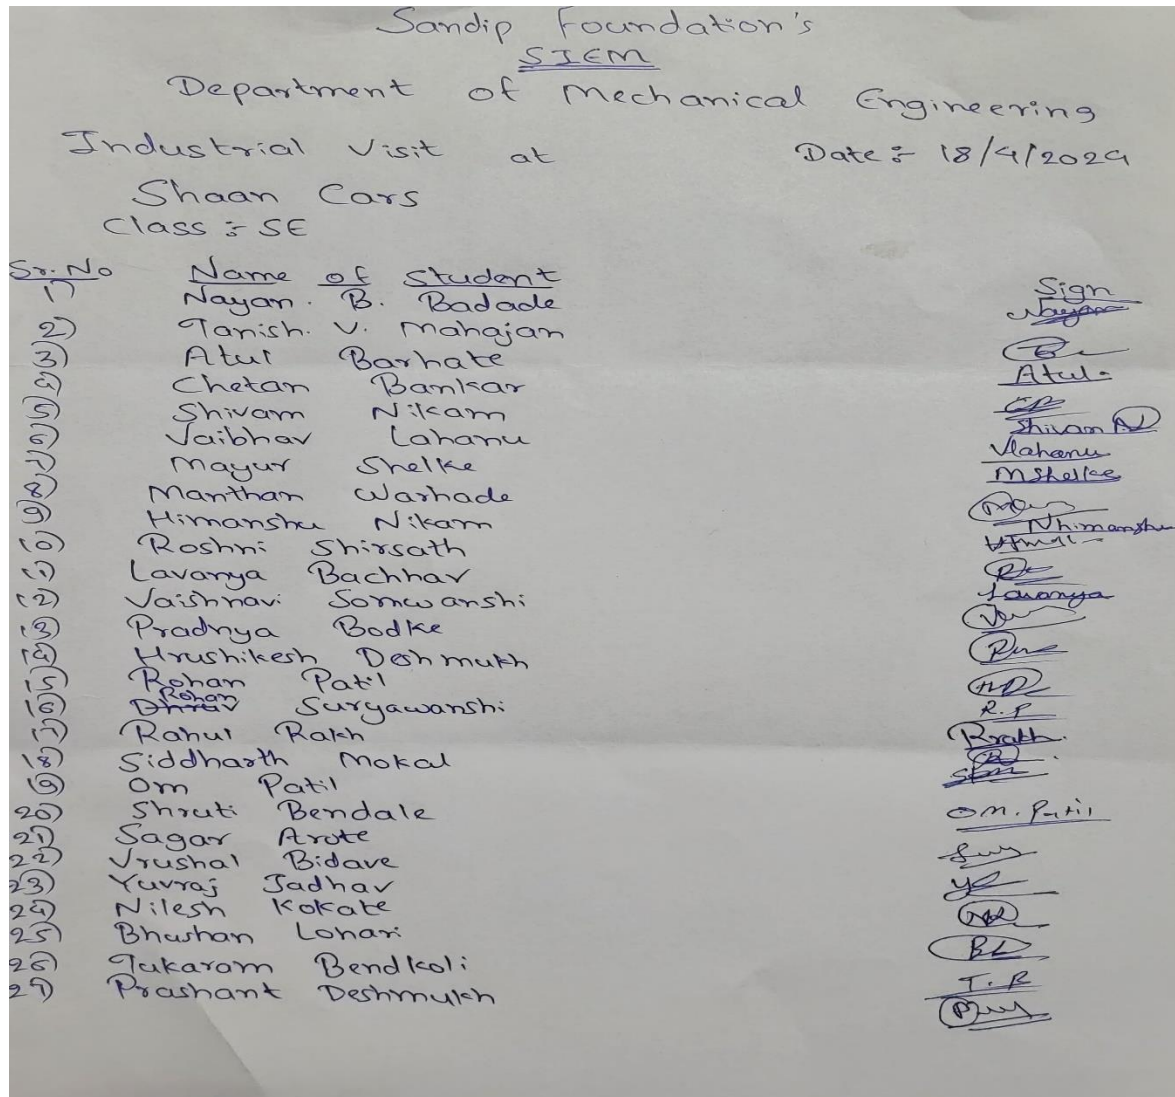 Sandip Foundation's
SIEM
Department of Mechanical Engineering
Industrial Visit at Date :- 18/4/2024
Shaan Cars
Class :- SE
Sr. No Name of Student Sign
1) Nayan. B. Badade Nayan
2) Tanish. V. Mahajan
3) Atul Barhate Atul
4) Chetan Bankar
5) Shivam Nikam Shivam
6) Vaibhav Lahanu Vlahanu
7) Mayur Shelke MShelke
8) Manthan Warhade
9) Himanshu Nikam Nhimanshu
10) Roshni Shirsath
11) Lavanya Bachhav Lavanya
12) Vaishnavi Somwanshi
13) Pradnya Bodke
14) Hrushikesh Deshmukh
15) Rohan Patil R.P
16) Dhruv Rohan Suryawanshi
17) Rahul Rakh Rrakh.
18) Siddharth Mokal
19) Om Patil Om. Patil
20) Shruti Bendale
21) Sagar Arote
22) Vrushal Bidave
23) Yuvraj Jadhav
24) Nilesh Kokate
25) Bhushan Lohari BL
26) Tukaram Bendkoli
27) Prashant Deshmukh